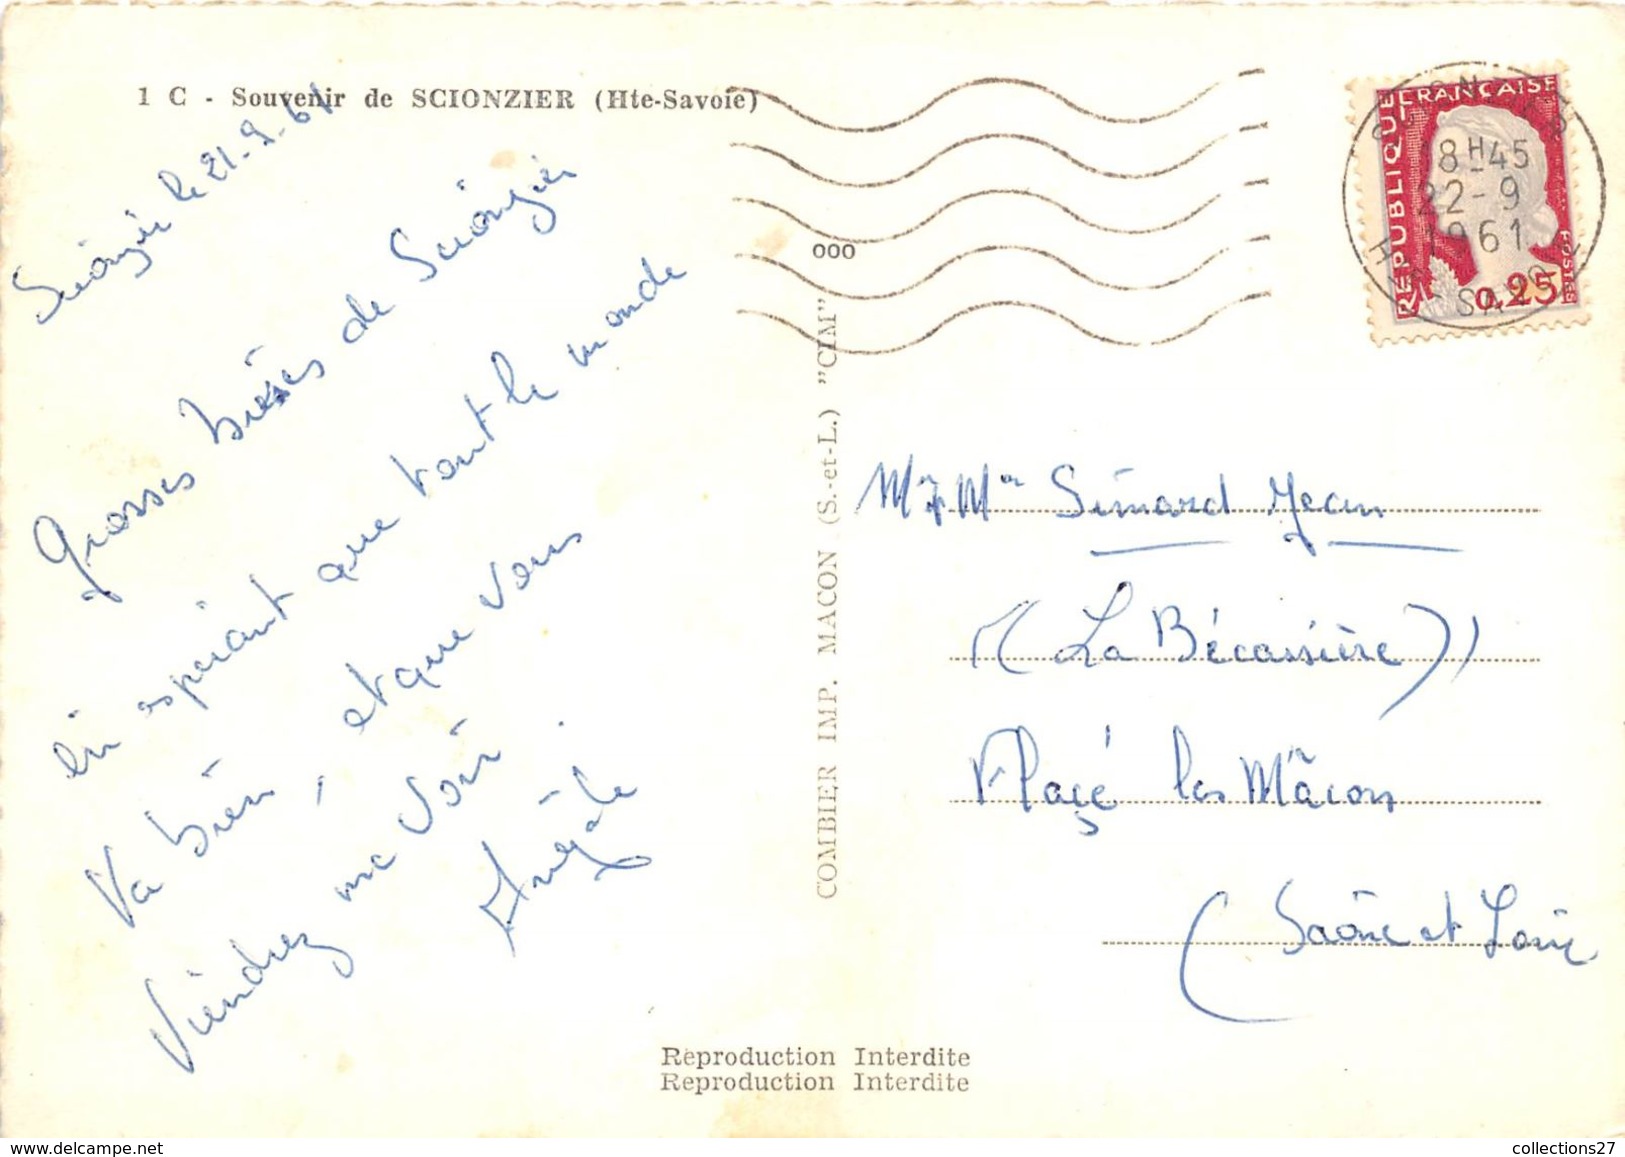 1 C - Souvenir de SCIONZIER (Hte-Savoie)
Scionzier le 21-9-61
Grosses bises de Scionzier
en espérant que tout le monde
va bien, et que vous
viendrez me voir.
Angèle
000
COMBIER IMP. MACON (S.-et-L.) "CIM"
REPUBLIQUE FRANÇAISE
POSTES
0,25
SCIONZIER
18H45
22-9
1961
HTE SAVOIE
Mr & Me Simard Jean
(La Bécassière)
Flacé les Mâcon
(Saône et Loire
Reproduction Interdite
Reproduction Interdite
www.delcampe.net
collections27